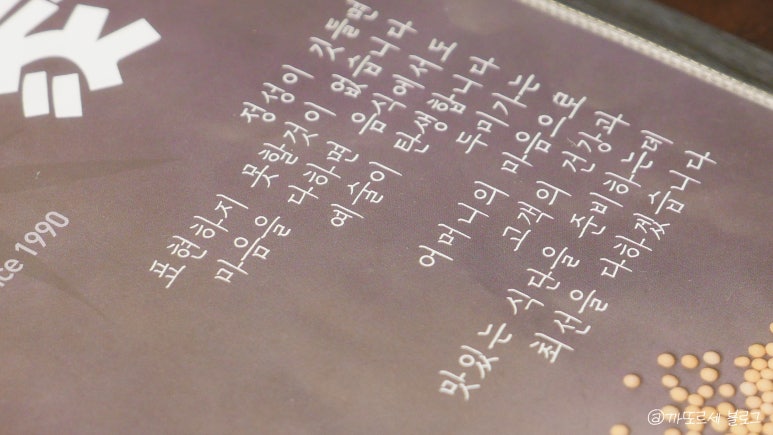 정성이 깃들면
표현하지 못할것이 없습니다
마음을 다하면 음식에서도
예술이 탄생합니다
두미가는
어머니의 마음으로
고객의 건강과
맛있는 식단을 준비하는데
최선을 다하겠습니다
nce 1990
@까또르세 블로그